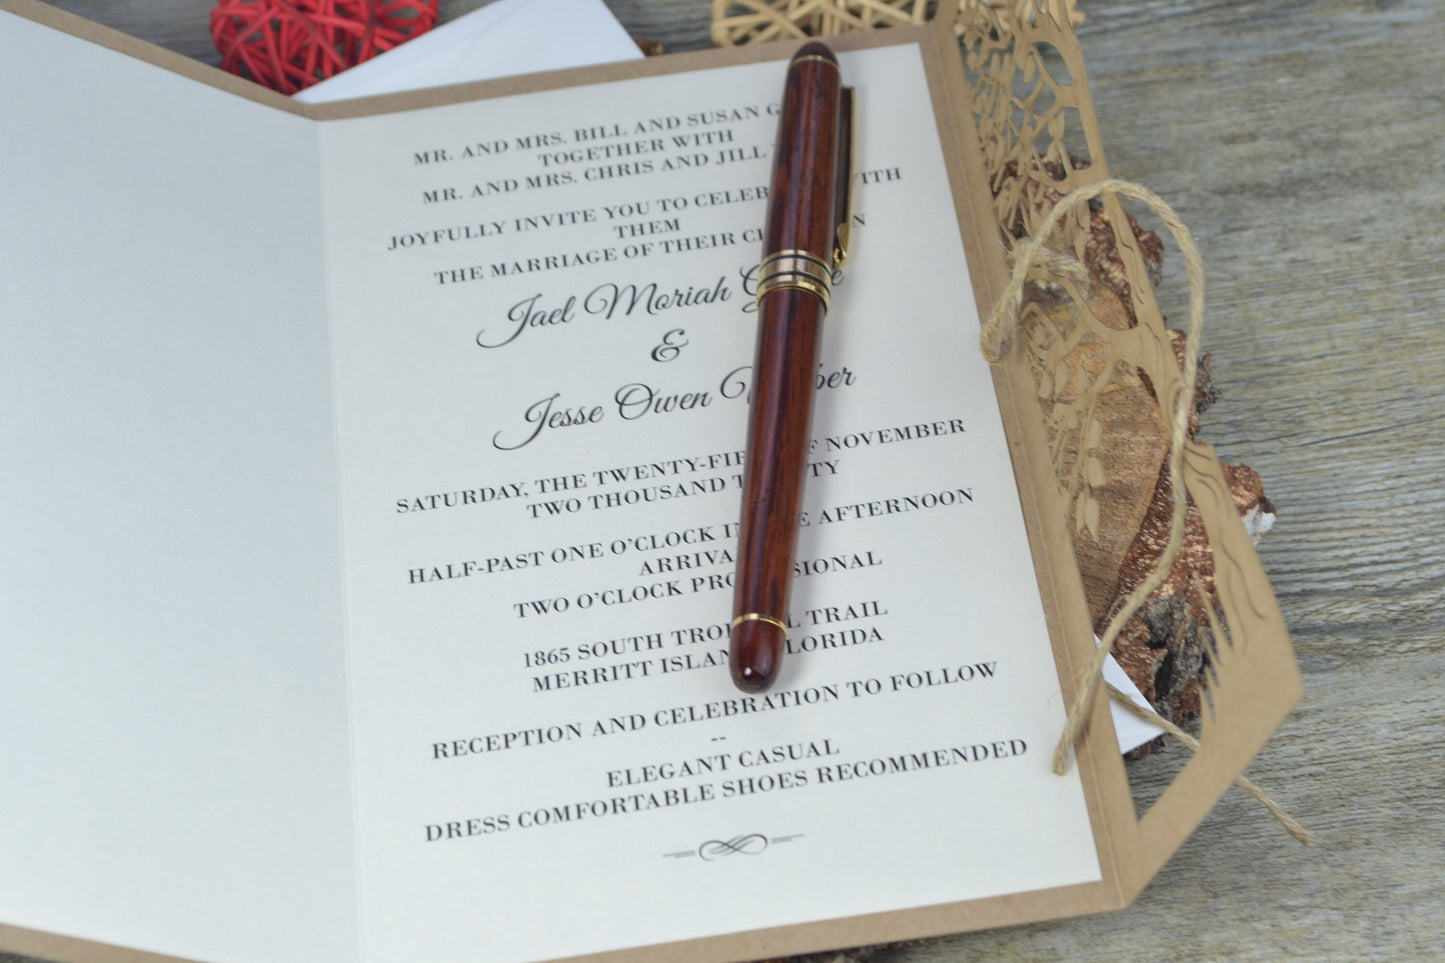 MR. AND MRS. BILL AND SUSAN
TOGETHER WITH
MR. AND MRS. CHRIS AND JILL
JOYFULLY INVITE YOU TO WITH
THEM
THE MARRIAGE OF THEIR
Jael Moriah
&
Jesse Owen
SATURDAY, THE NOVEMBER
TWO THOUSAND
HALF-PAST ONE O'CLOCK AFTERNOON
TWO O'CLOCK
1865 SOUTH TRAIL
MERRITT
RECEPTION AND CELEBRATION TO FOLLOW
--
ELEGANT CASUAL
DRESS COMFORTABLE SHOES RECOMMENDED